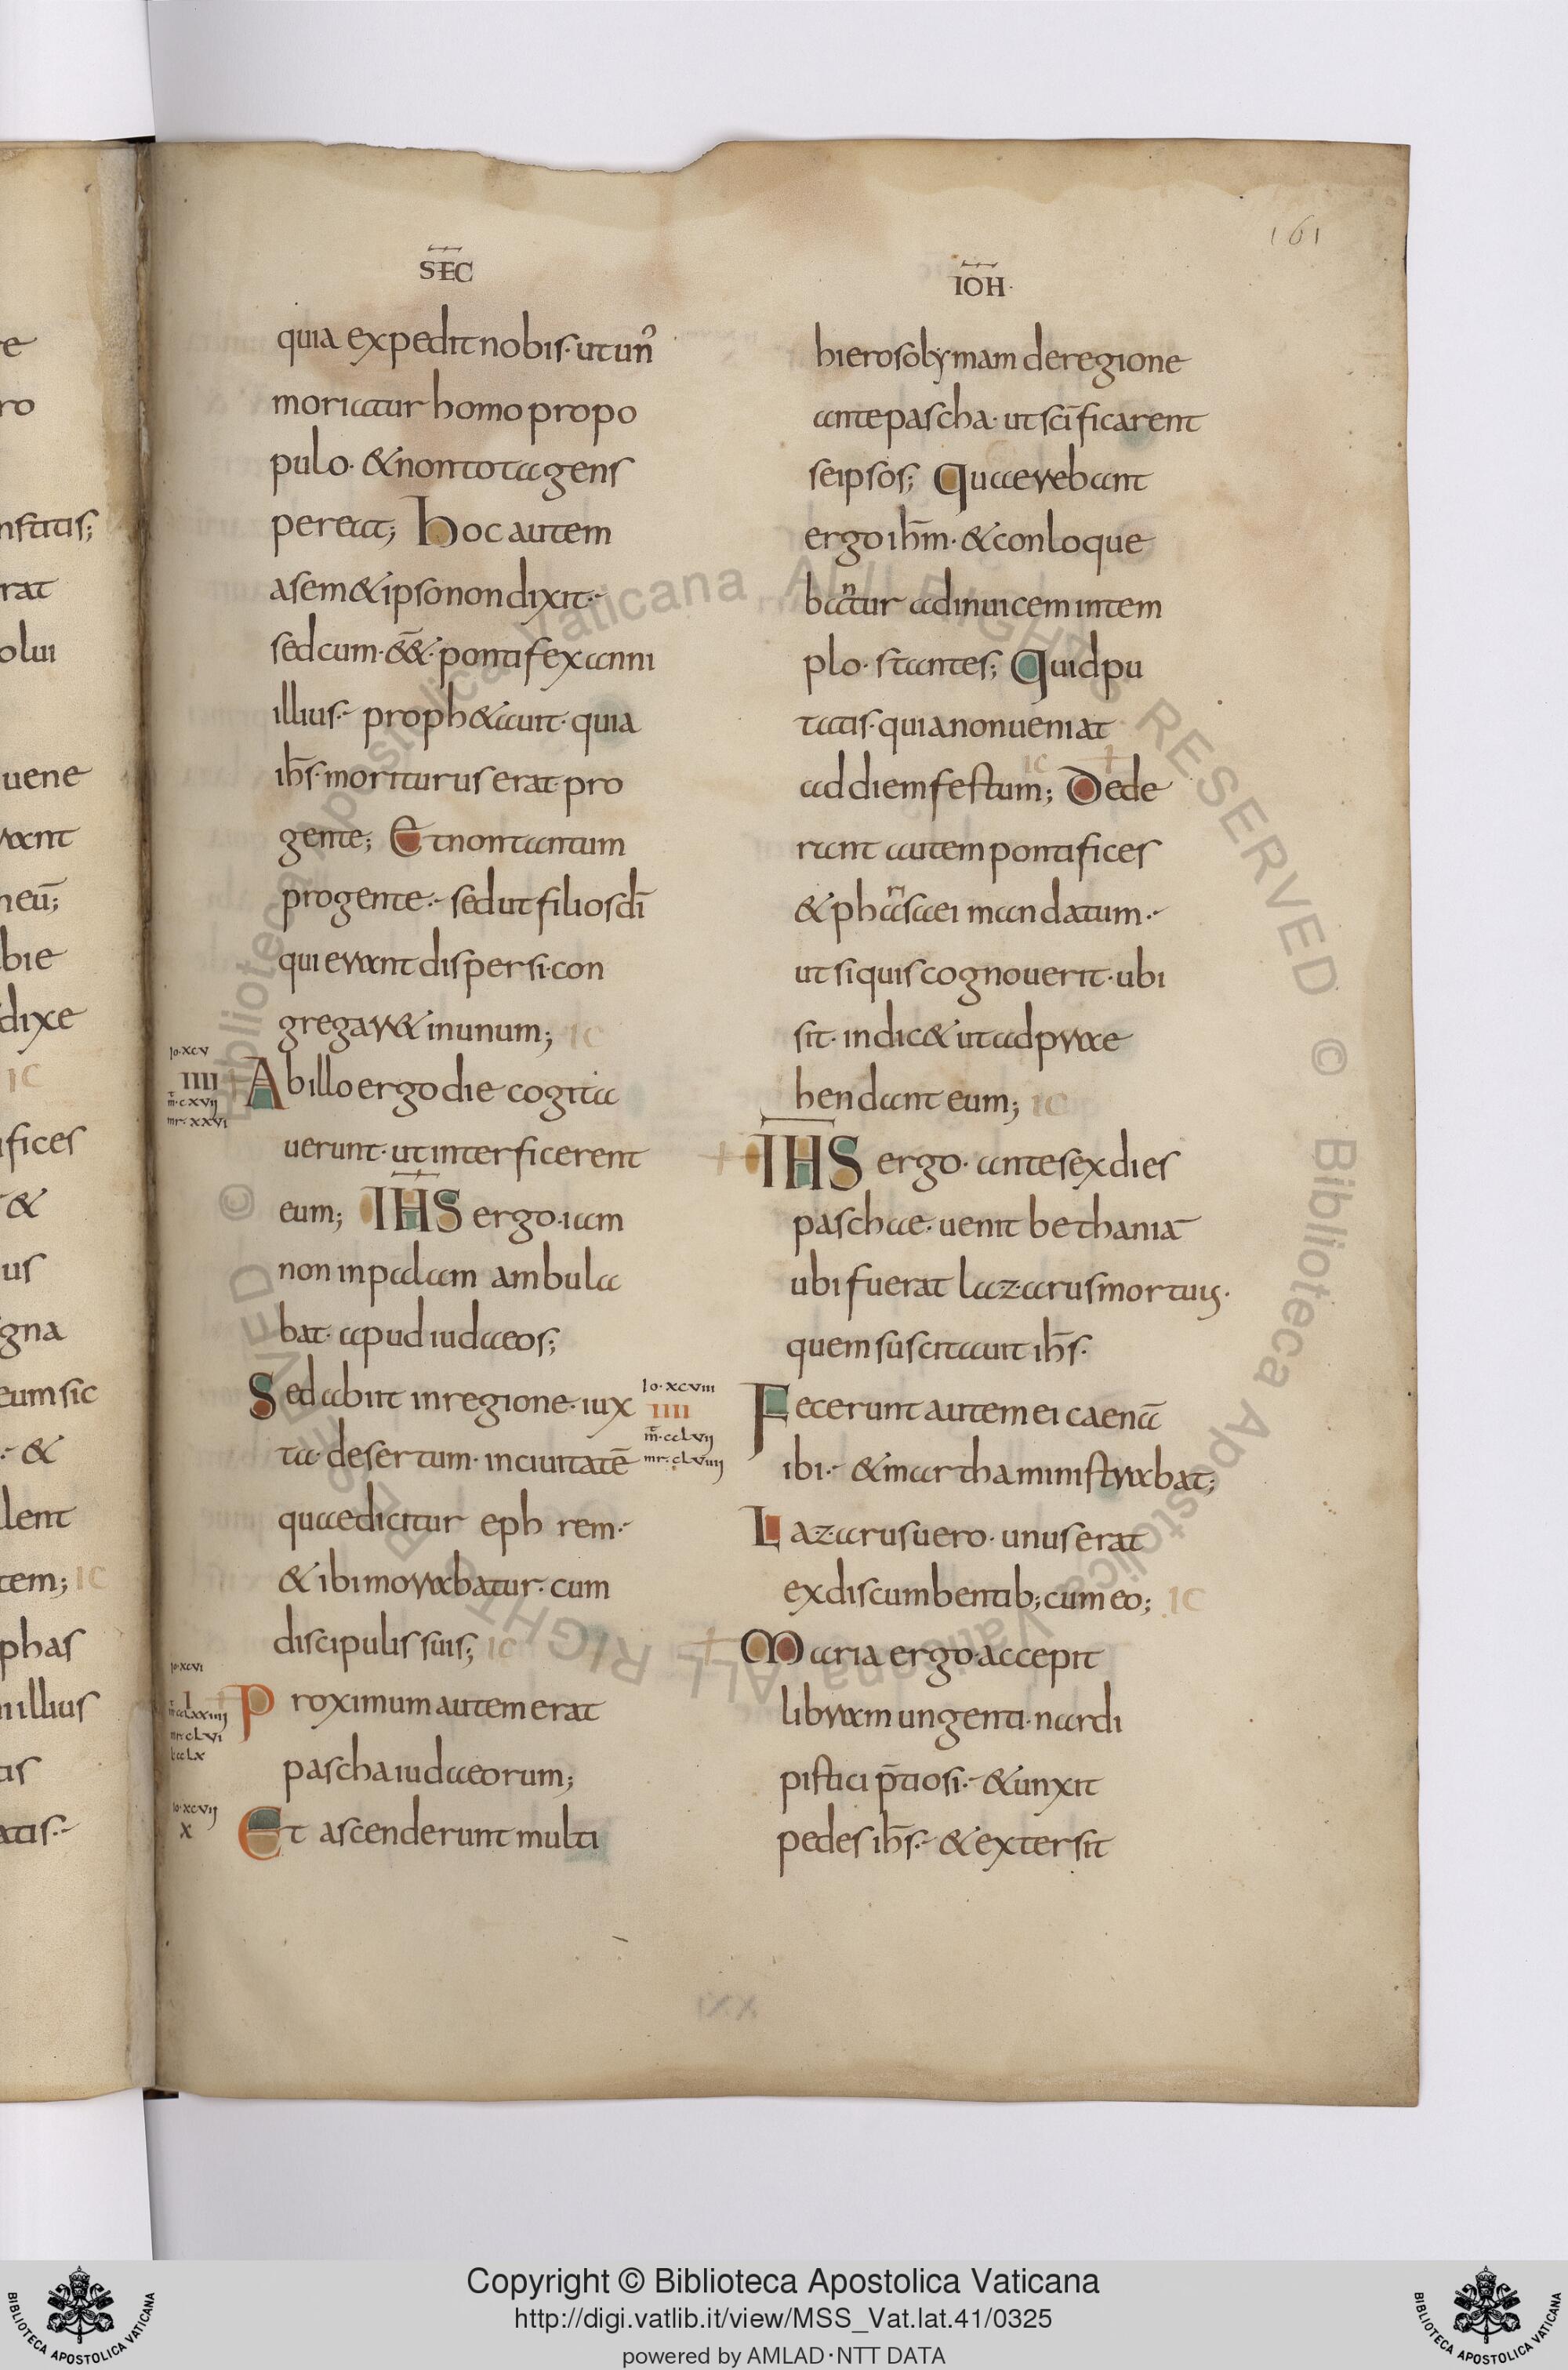 161
SEC
quia expedit nobis· ut un᾿
moriatur homo pro po
pulo· & non tota gens
pereat; Hoc autem
a sem&ipso non dixit·
sed cum· ēē&· pontifex anni
illius· proph&auit· quia
ih̅s· moriturus erat· pro
gente; Et non tantum
pro gente· sed ut filios dī
qui erant dispersi· con
gregar& in unum; IC
Io·xcv
IIII
m̅·cxvij
mr·xxvi
Ab illo ergo die cogita
uerunt· ut interficerent
eum; IHS ergo· iam
non in palam ambula
bat· apud iudaeos;
Sed abiit in regione· iux
ta· desertum· in ciuitatē
quae dicitur eph rem·
& ibi morabatur· cum
discipulis suis; IC
Io·xcvi
I
m̅ cclxxiiij
mr·clvi
l·cclx
Proximum autem erat
pascha iudaeorum;
Io·xcvij
X
Et ascenderunt multi
IOH·
hierosolymam de regione
ante pascha· ut scīficarent
se ipsos; Quaerebant
ergo ih̅m· & conloque
bantur ad inuicem in tem
plo· stantes; Quid pu
tatis· quia non ueniat
ad diem festum; IC Dede
runt autem pontifices
& pharisaei mandatum·
ut si quis cognouerit· ubi
sit· indic& ut adprae
hendant eum; IC
IHS ergo· ante sex dies
paschae· uenit bethaniā
ubi fuerat lazarus mortuus·
quem suscitauit ih̅s·
Io·xcviii
IIII
m̅·cclvij
mr·clviiij
Fecerunt autem ei caenā
ibi· & martha ministrabat;
Lazarus uero· unus erat
ex discumbentib; cum eo; IC
Maria ergo· accepit
libram ungenti· nardi
pistici p̅tiosi· & unxit
pedes ih̅s· & extersit
XXI
re
ro
nstitis;
rat
olui
uene
rant
neū;
bie
dixe
IC
ifices
&
us
gna
eum sic
· &
llent
tem; IC
phas
nillius
tis
atis·
© Biblioteca Apostolica Vaticana ALL RIGHTS RESERVED © Biblioteca Apostolica Vaticana ALL RIGHTS RESERVED
Copyright © Biblioteca Apostolica Vaticana
http://digi.vatlib.it/view/MSS_Vat.lat.41/0325
powered by AMLAD·NTT DATA
BIBLIOTECA APOSTOLICA VATICANA
BIBLIOTECA APOSTOLICA VATICANA